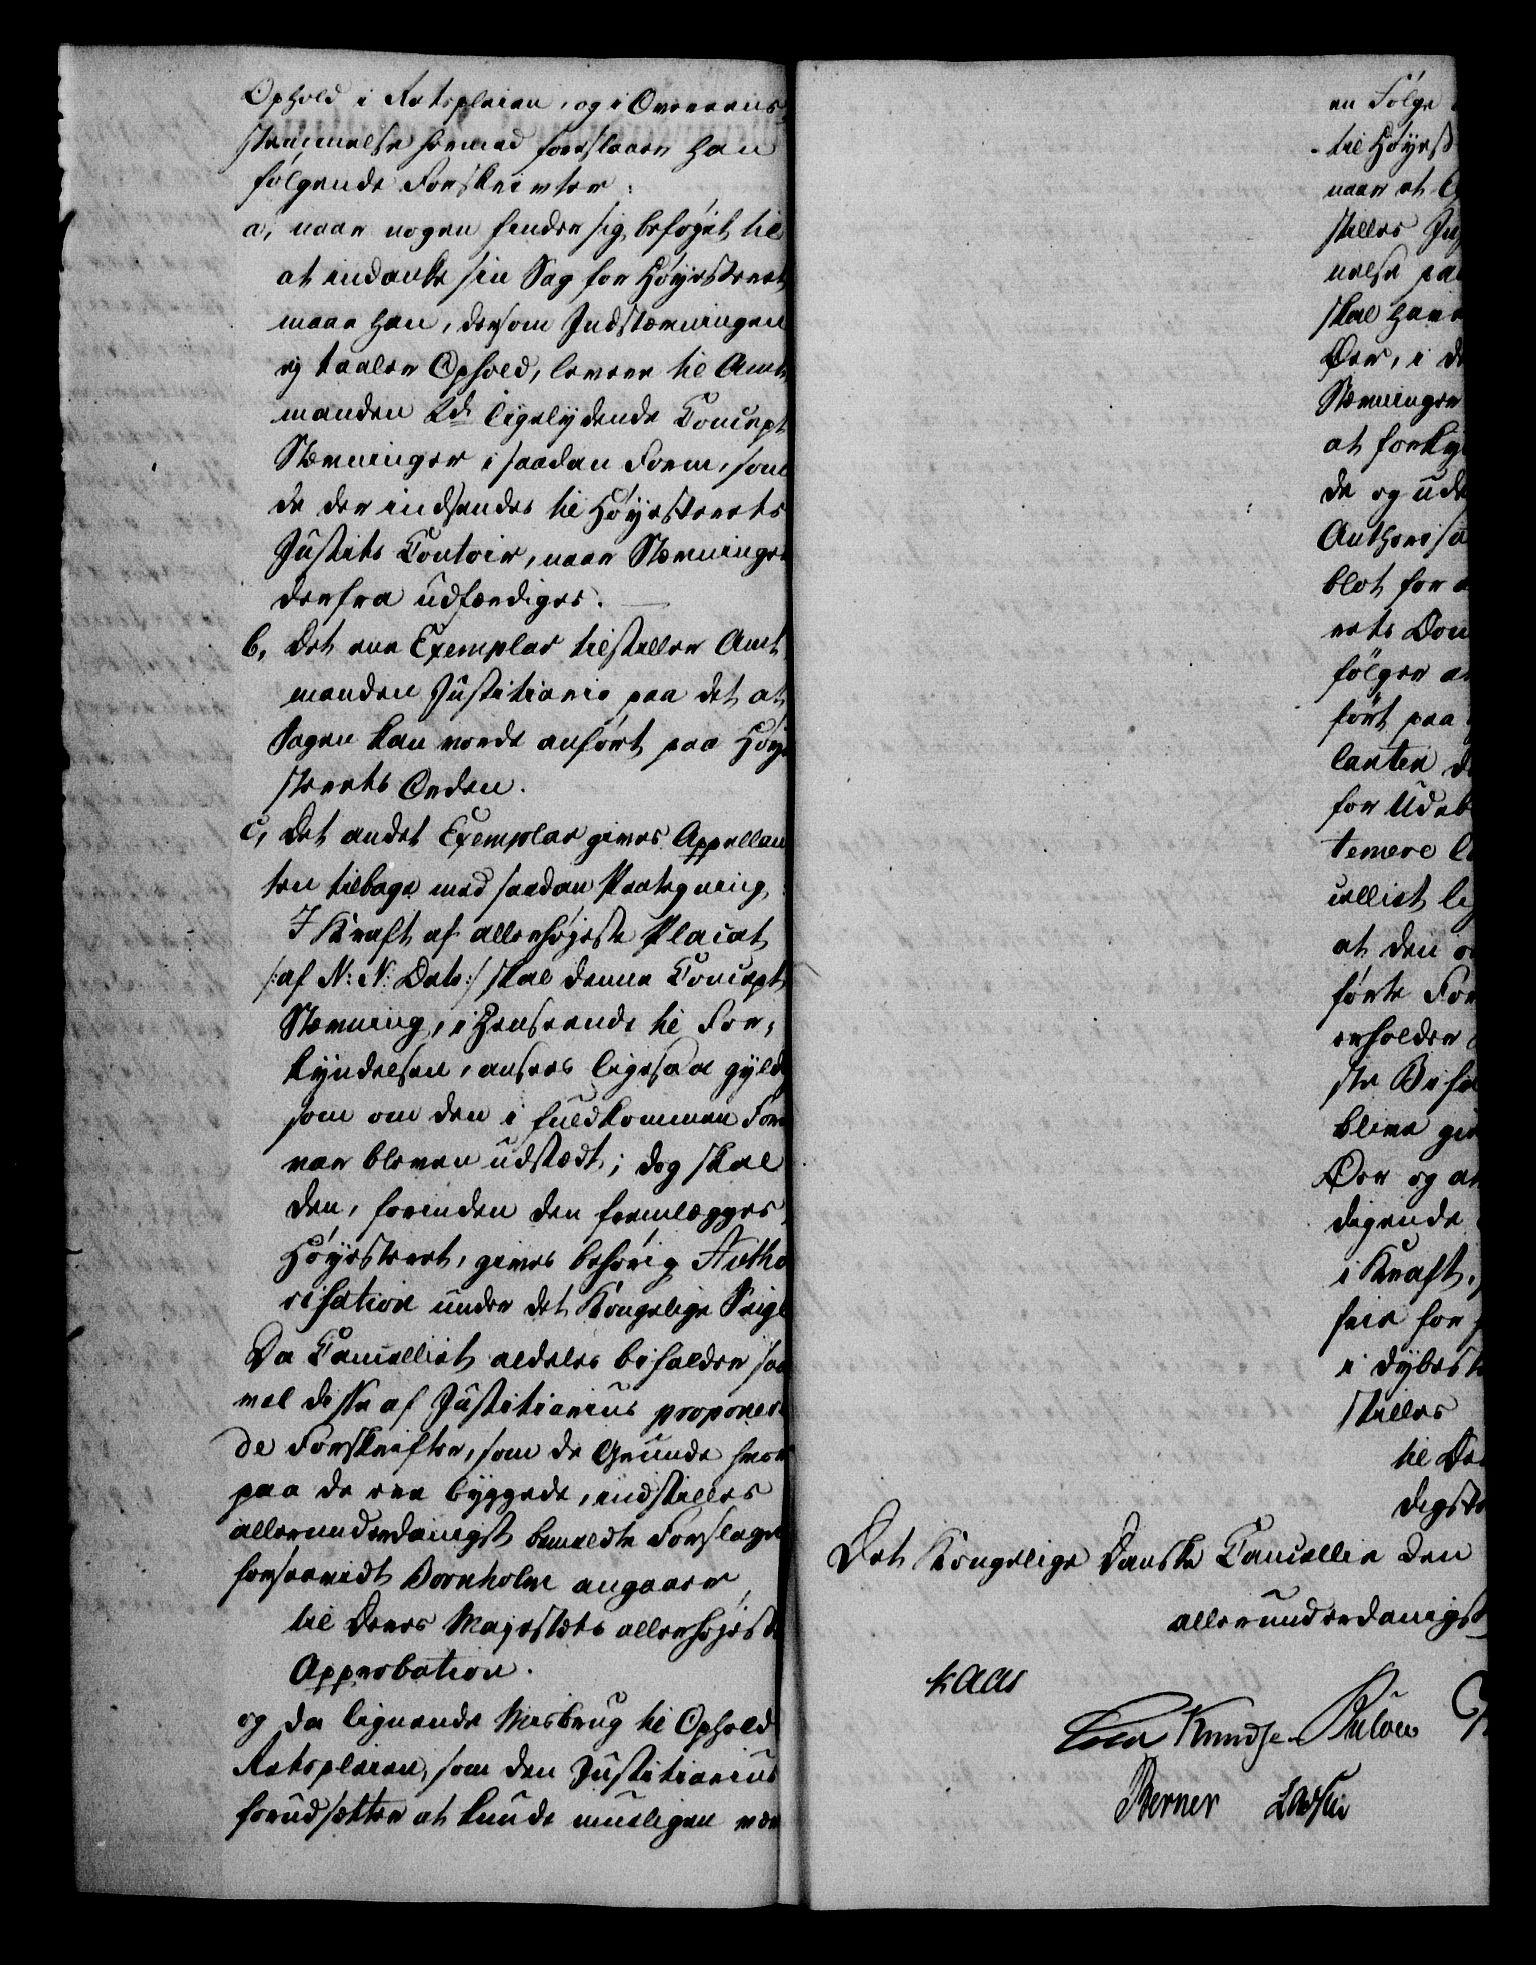 Ophold i Retspleien, og i Overeens
stemmelse hermed foreslaaer han
følgende Forskrivter:
a, naar nogen finder sig beføjet til
at indanke sin Sag for Høyesteret,
maae han, dersom Indstævningen
ej taaler Ophold, levere til Amt
manden 2de ligelydende Concept
Stævninger i saadan Form, som
de der indsendes til Høyesterets
Justits Contoir, naar Stævninger
derfra udfærdiges.
b, det ene Exemplar tilstiller Amt
manden Justitiario paa det at
Sagen kan vorde anført paa Høye
sterets Orden.
c, det andet Exemplar gives Appellan
ten tilbage med saadan Paategning
I Kraft af allerhøjeste Placat
/:af N: N: Dato:/ skal denne Concept
Stævning, i Henseende til For,
kyndelsen, ansees ligesaa gyld
som om den i fuldkommen Form
var bleven udstædt; dog skal
den, forinden den fremlægges,
Høyesteret, gives behørig Autho
risation under det Kongelige Seigl
Da Cancelliet aldeles bifalder saa
vel disse af Justitiarius propone
de Forskrifter, som de Grunde hvor
paa de ere byggede, indstilles
allerunderdanigst bemeldte Forslag
forsaavidt Bornholm angaaer
til Deres Majestæts allerhøjeste
Approbation.
og da lignende Misbrug til Ophold
Retspleien, som den Justitiarius
forudsætter at kunde mueligen være
en Følge
til Høyest
naar et
stilles
nelse paa
skal have
Øer, i
Stævninger
at forky
de og ude
Authorisa
blot for
rets Dom
følger
ført paa
lanten
for Udeb
temere
celliet
at den
førte For
erholder
ste Bifal
blive
Øer og at
digende
i Kraft,
heie for
i dybeste
stilles
til De
digste
Det Kongelige Danske Cancellie den
allerunderdanigst
Kaas
Knudse Bülow
Berner Lassen